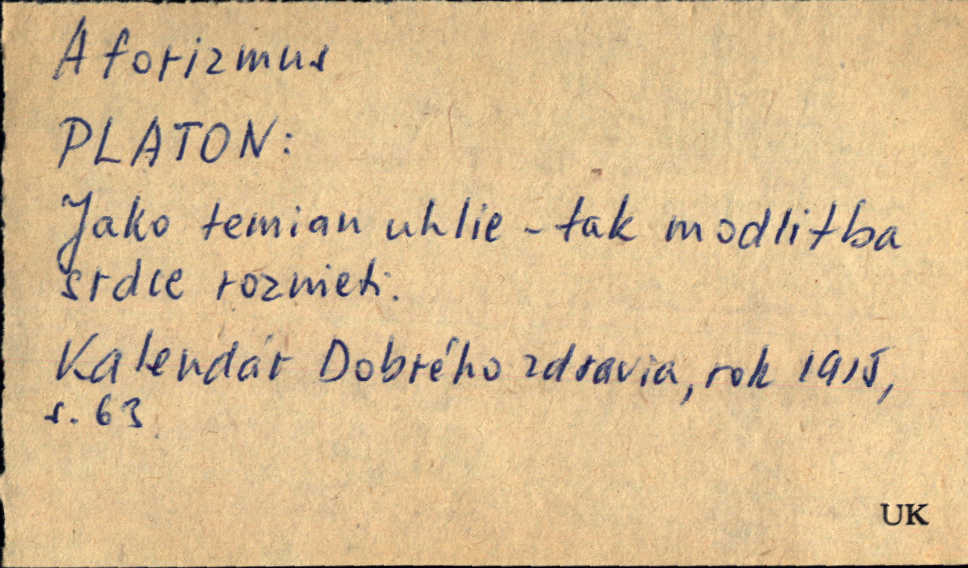 Aforizmus
PLATON:
Jako temian uhlie - tak modlitba
srdce roznieti.
Kalendár Dobrého zdravia, rok 1915,
s. 63
UK